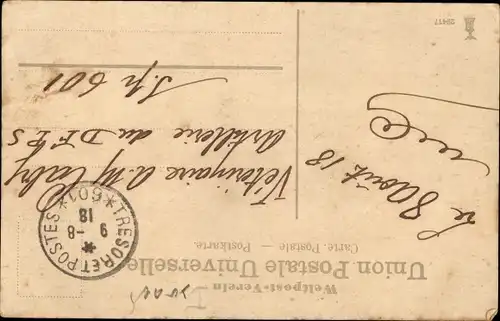 Weltpost-Verein
Union Postale Universelle
Carte Postale — Postkarte.
TRESOR ET POSTES
* 601 *
9 - 8
18
le 8 Août 18
Vétérinaire A
Artillerie du D F E S
S.p 601
29417